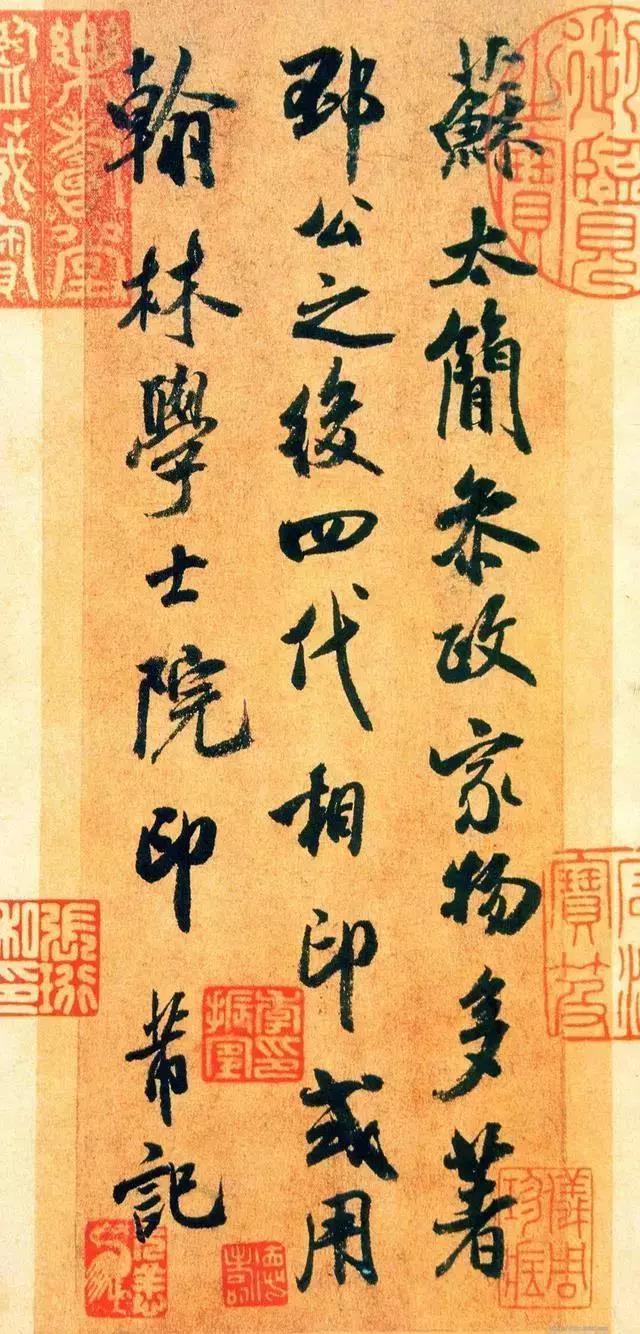 蘇太簡叅政家物多著
邳公之後四代相印或用
翰林學士院印 芾記
儀周珍藏